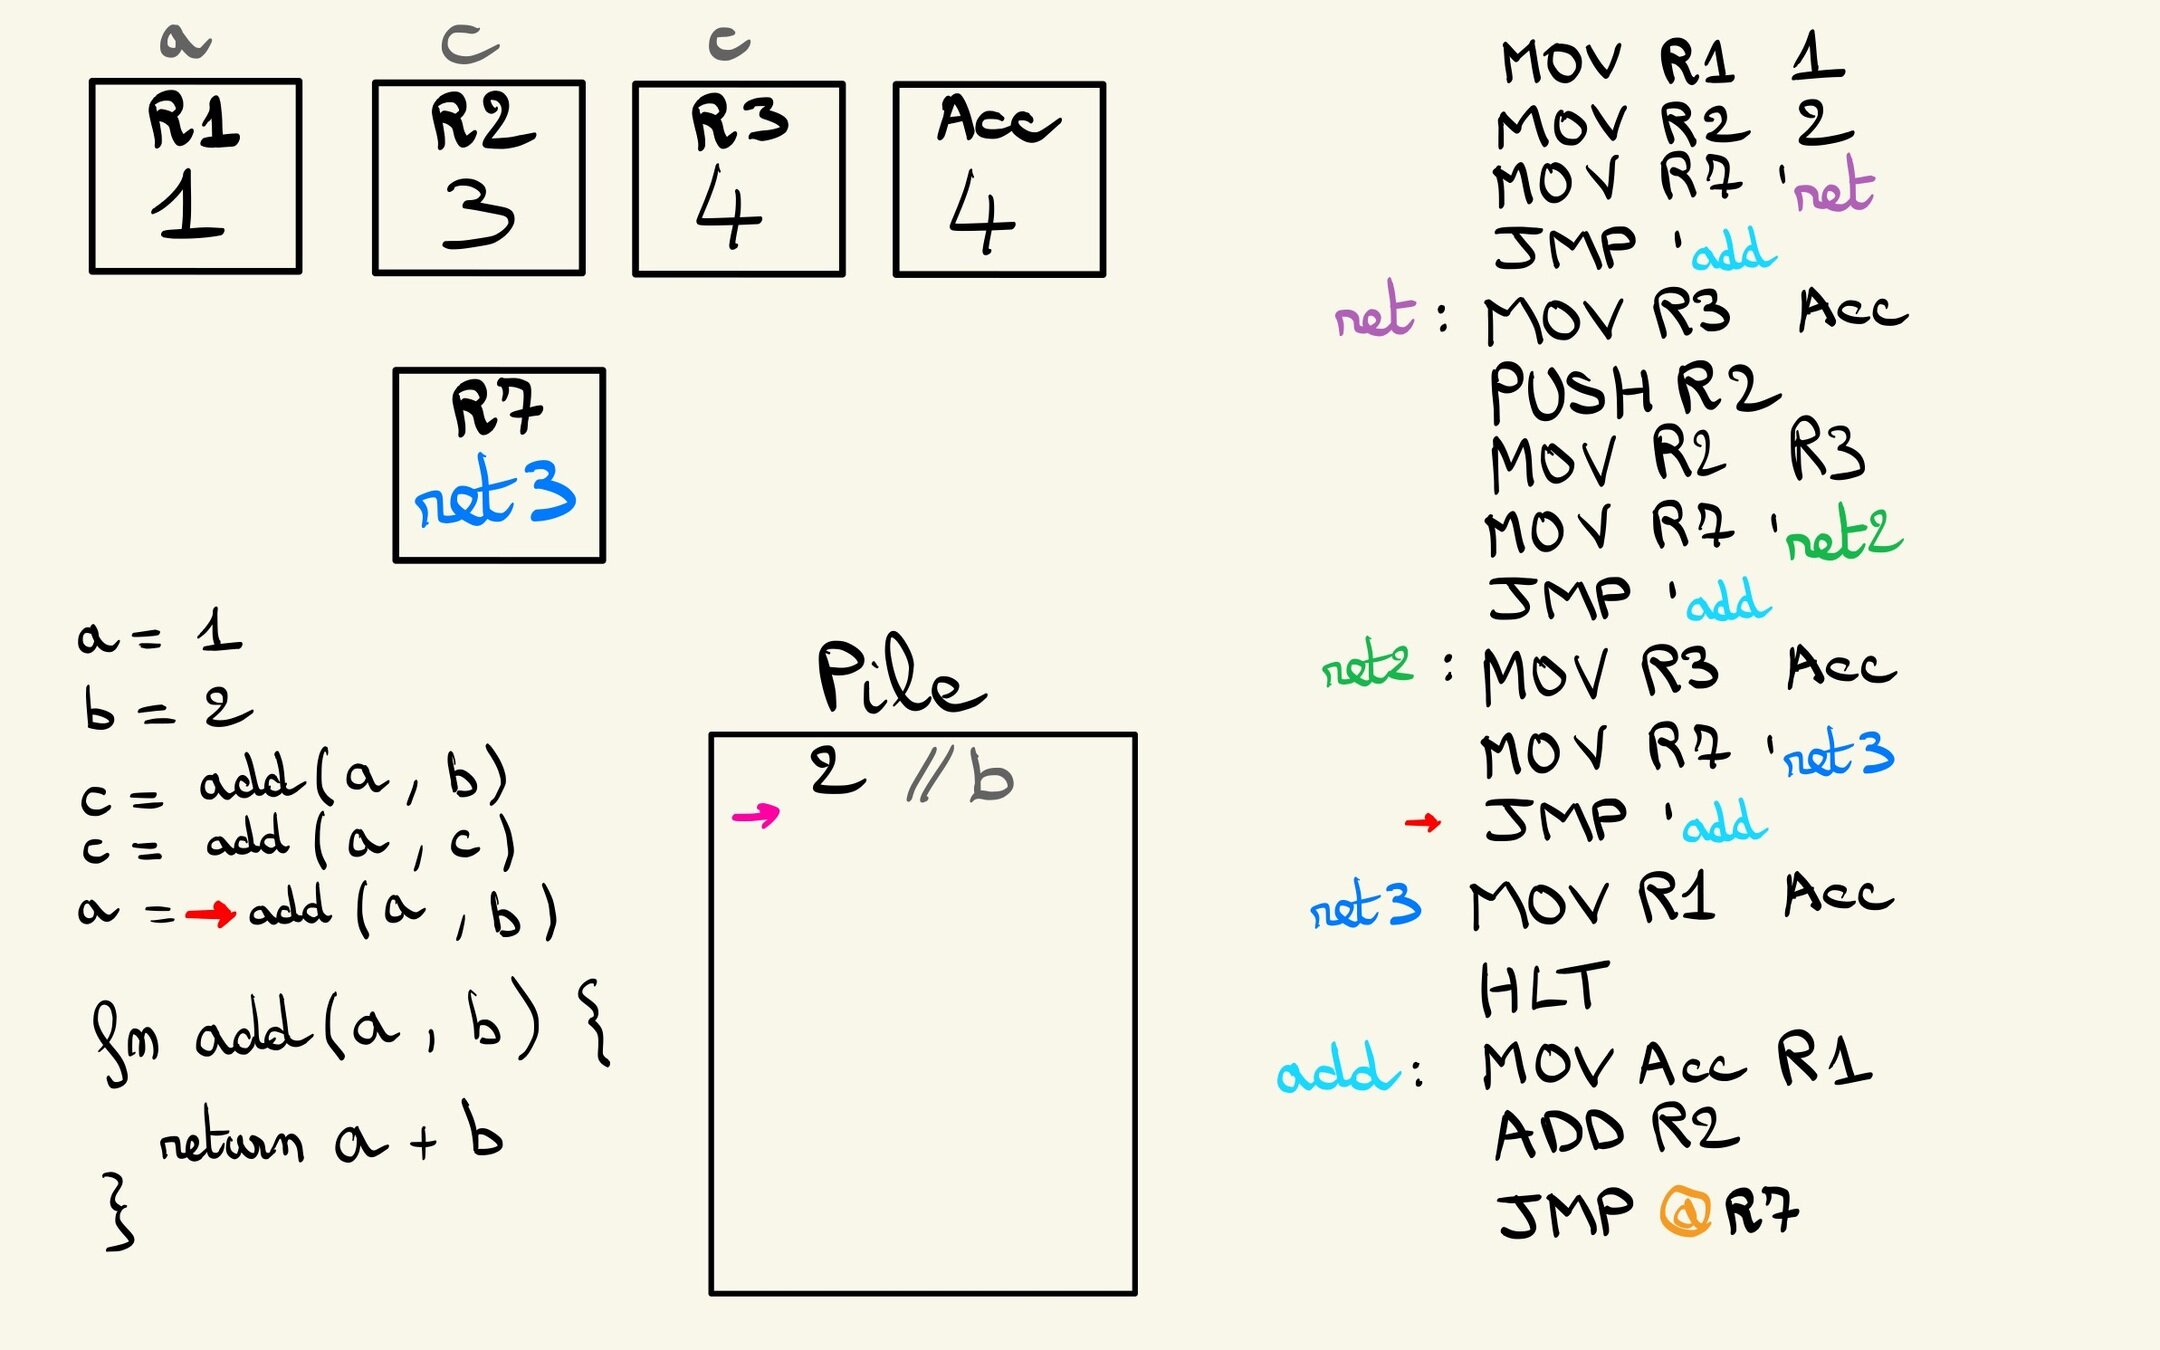 a
c
c
R1
1
R2
3
R3
4
Acc
4
R7
ret3
a = 1
b = 2
c = add(a, b)
c = add(a, c)
a = → add(a, b)
fn add(a, b) {
return a + b
}
Pile
2 // b
→
MOV R1 1
MOV R2 2
MOV R7 'ret
JMP 'add
ret: MOV R3 Acc
PUSH R2
MOV R2 R3
MOV R7 'ret2
JMP 'add
ret2: MOV R3 Acc
MOV R7 'ret3
→ JMP 'add
ret3 MOV R1 Acc
HLT
add: MOV Acc R1
ADD R2
JMP @R7